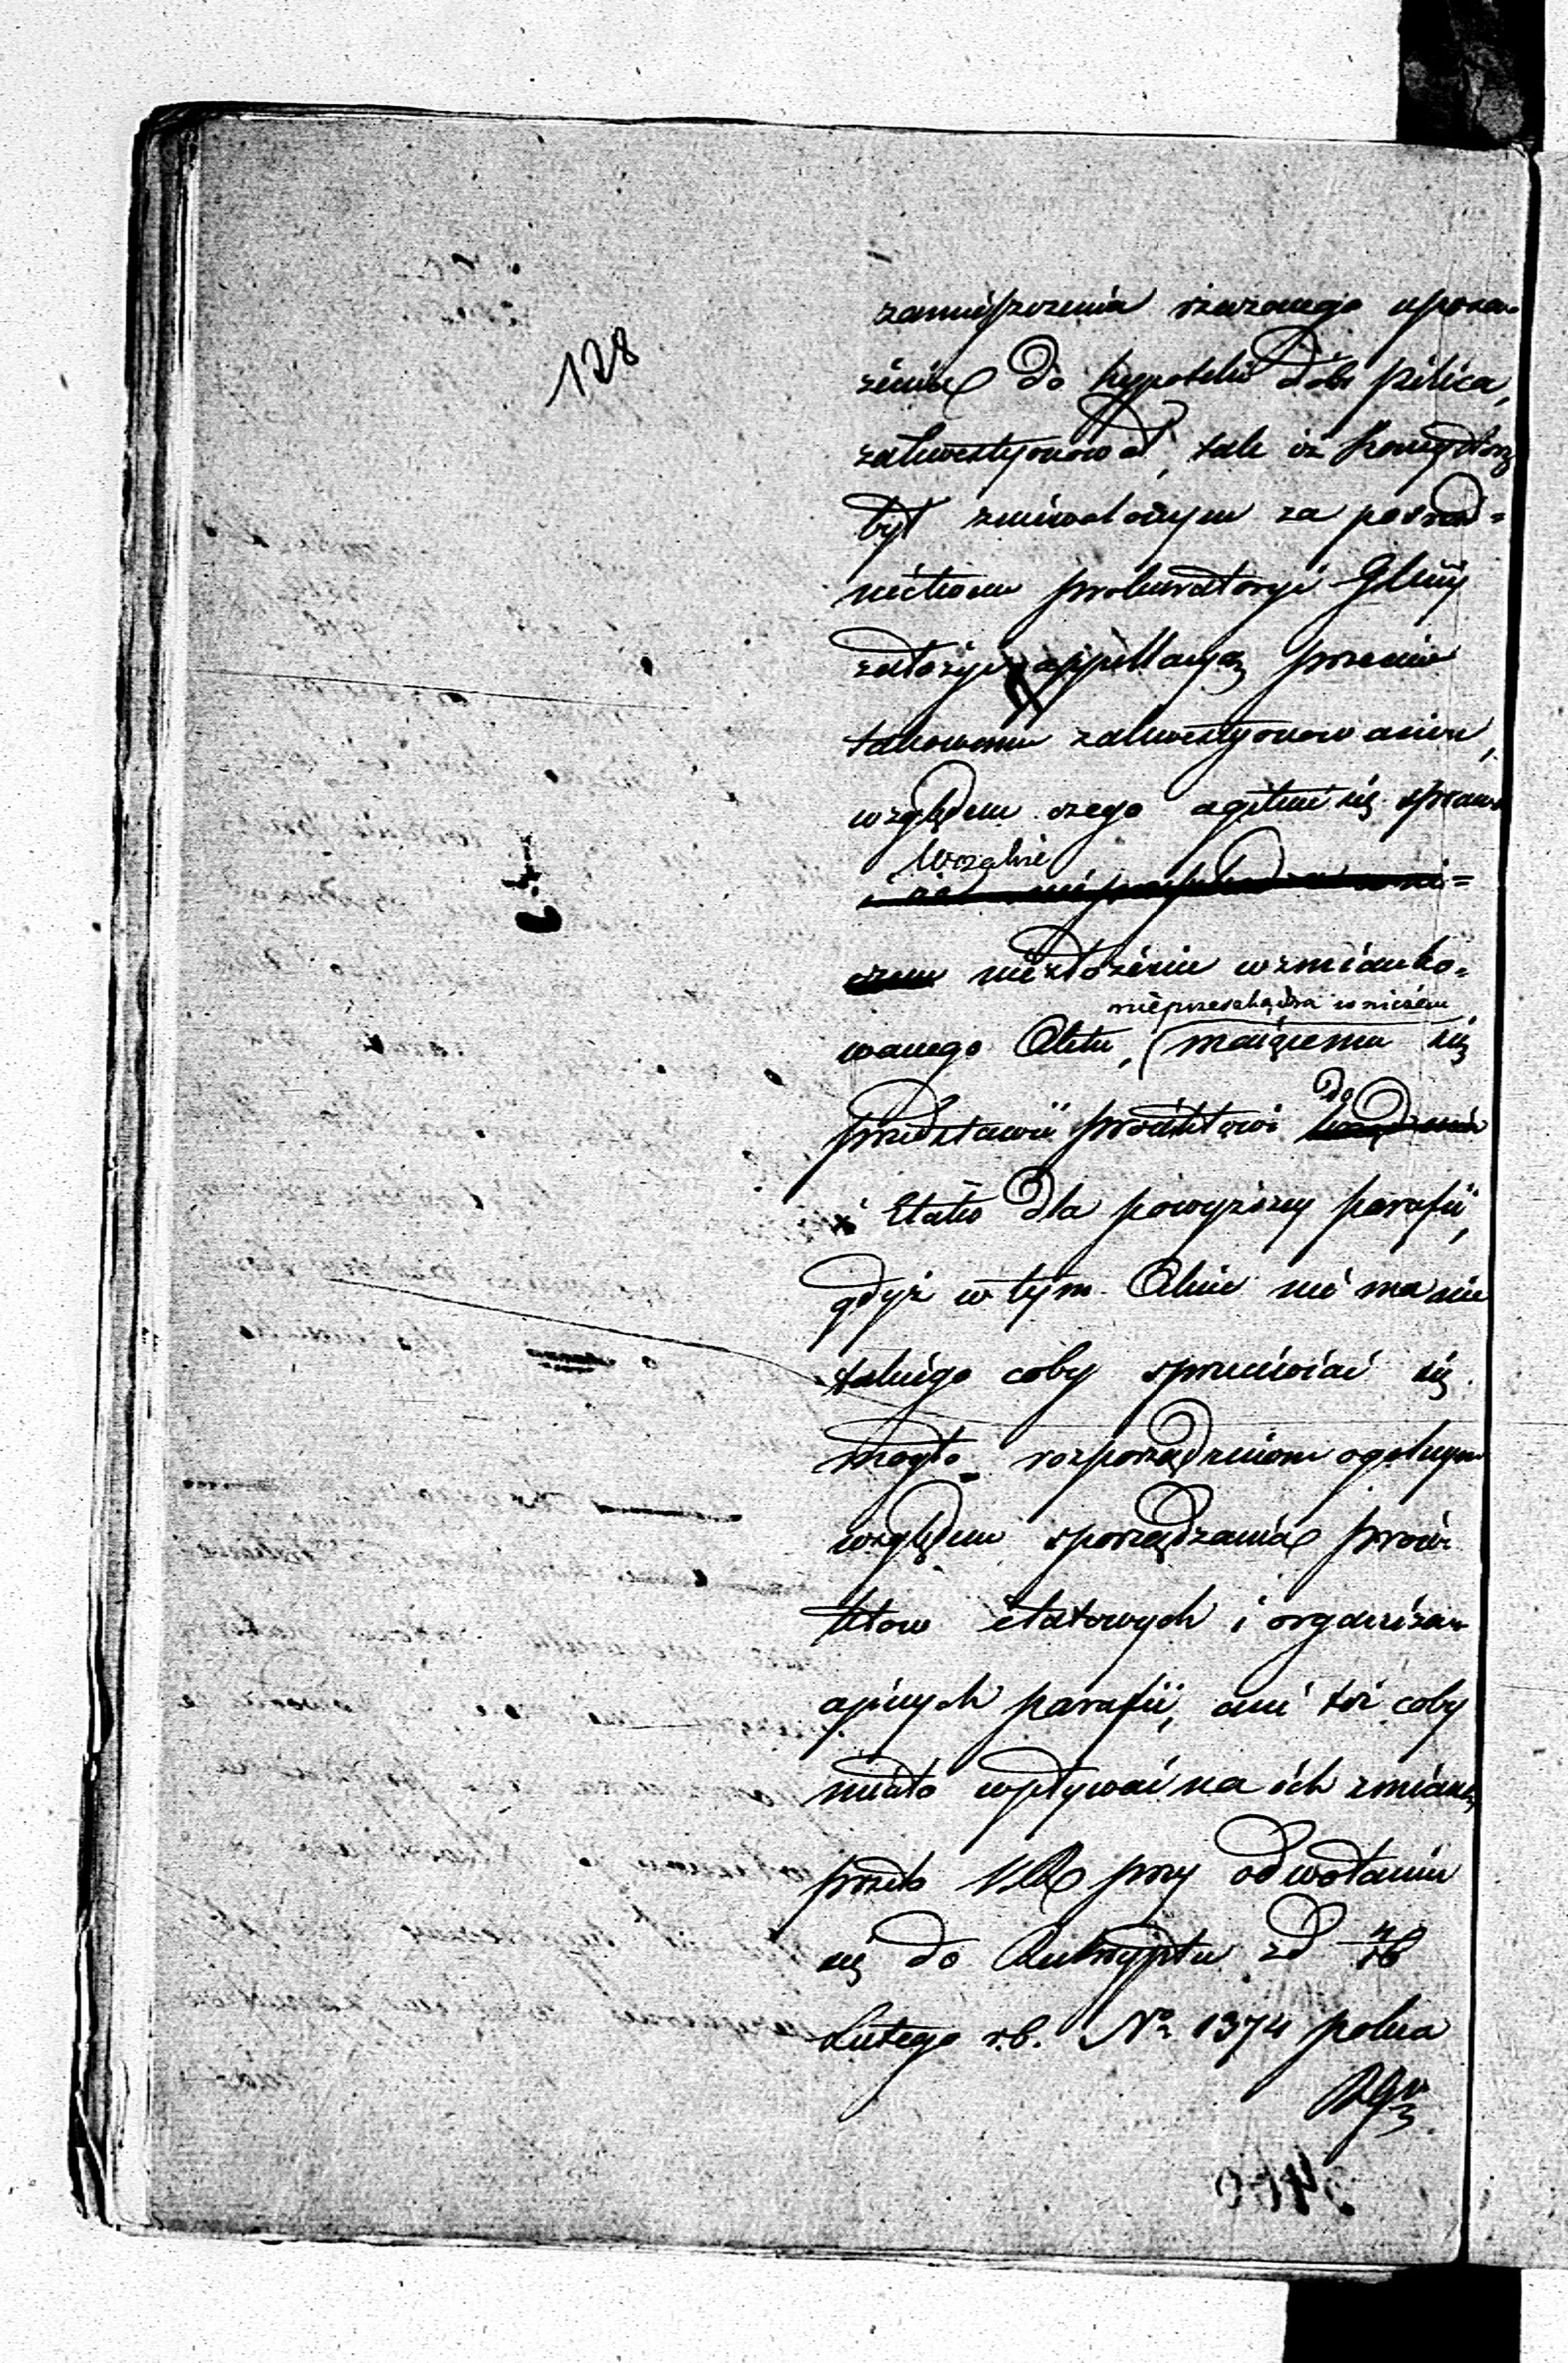 128
zamieszczenia rzeczonego uposa-
żenia do hypoteki dóbr Pilica,
zakwestyonował, tak iż Konsystorz
był zniewolonym za pośred-
nictwem prokuratoryi Glnej
założyć appellacyą przeciw
takowemu zakwestyonowaniu,
względem czego agituie się sprawa
Wszakże
niezłożenie wzmianko-
nieprzeszkadza wniczem
wanego Aktu, maiącemu się
do
przedstawić proiektowi
i Etatu dla powyższey parafii,
gdyż w tym Akcie nie ma nic
takiego coby sprzeciwiać się
mogło rozporządzeniom ogólnym
względem sporządzania proie-
któw etatowych i organiza-
cyjnych parafii, ani też coby
miało wpływać na ich zmianę
przeto KR przy odwołaniu
się do Reskryptu zd
Lutego r.b. No 1374 poleca